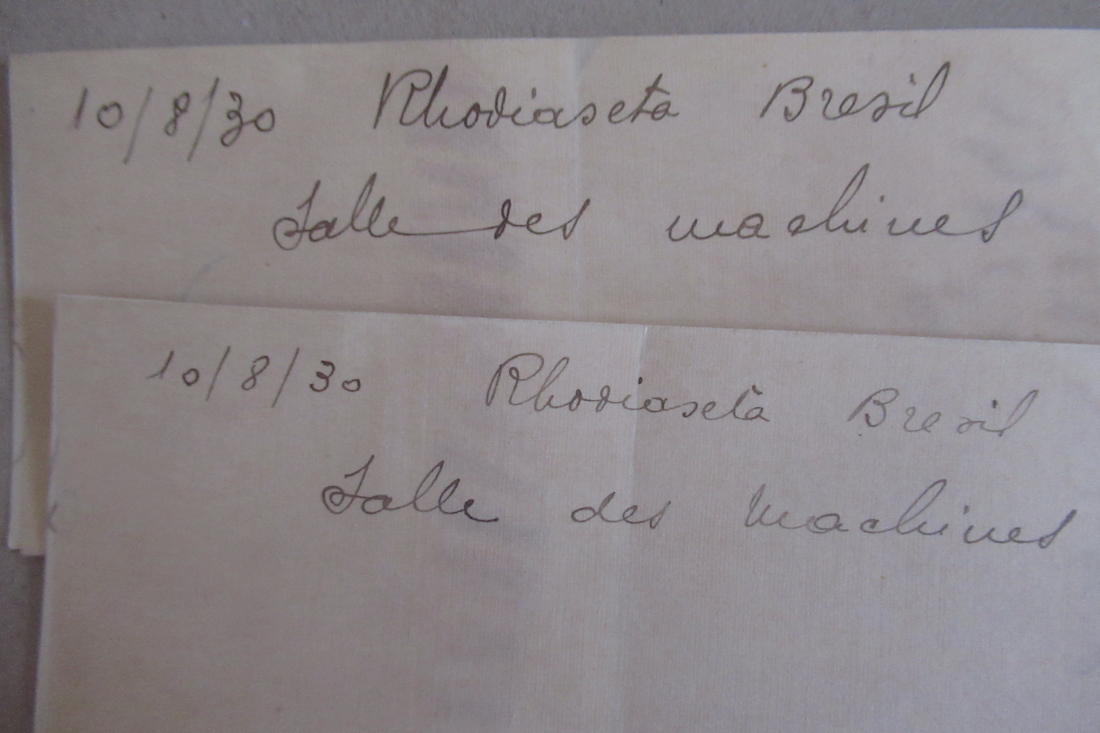 10/8/30 Rhodiaseta Bresil
Salle des machines
10/8/30 Rhodiaseta Bresil
Salle des machines